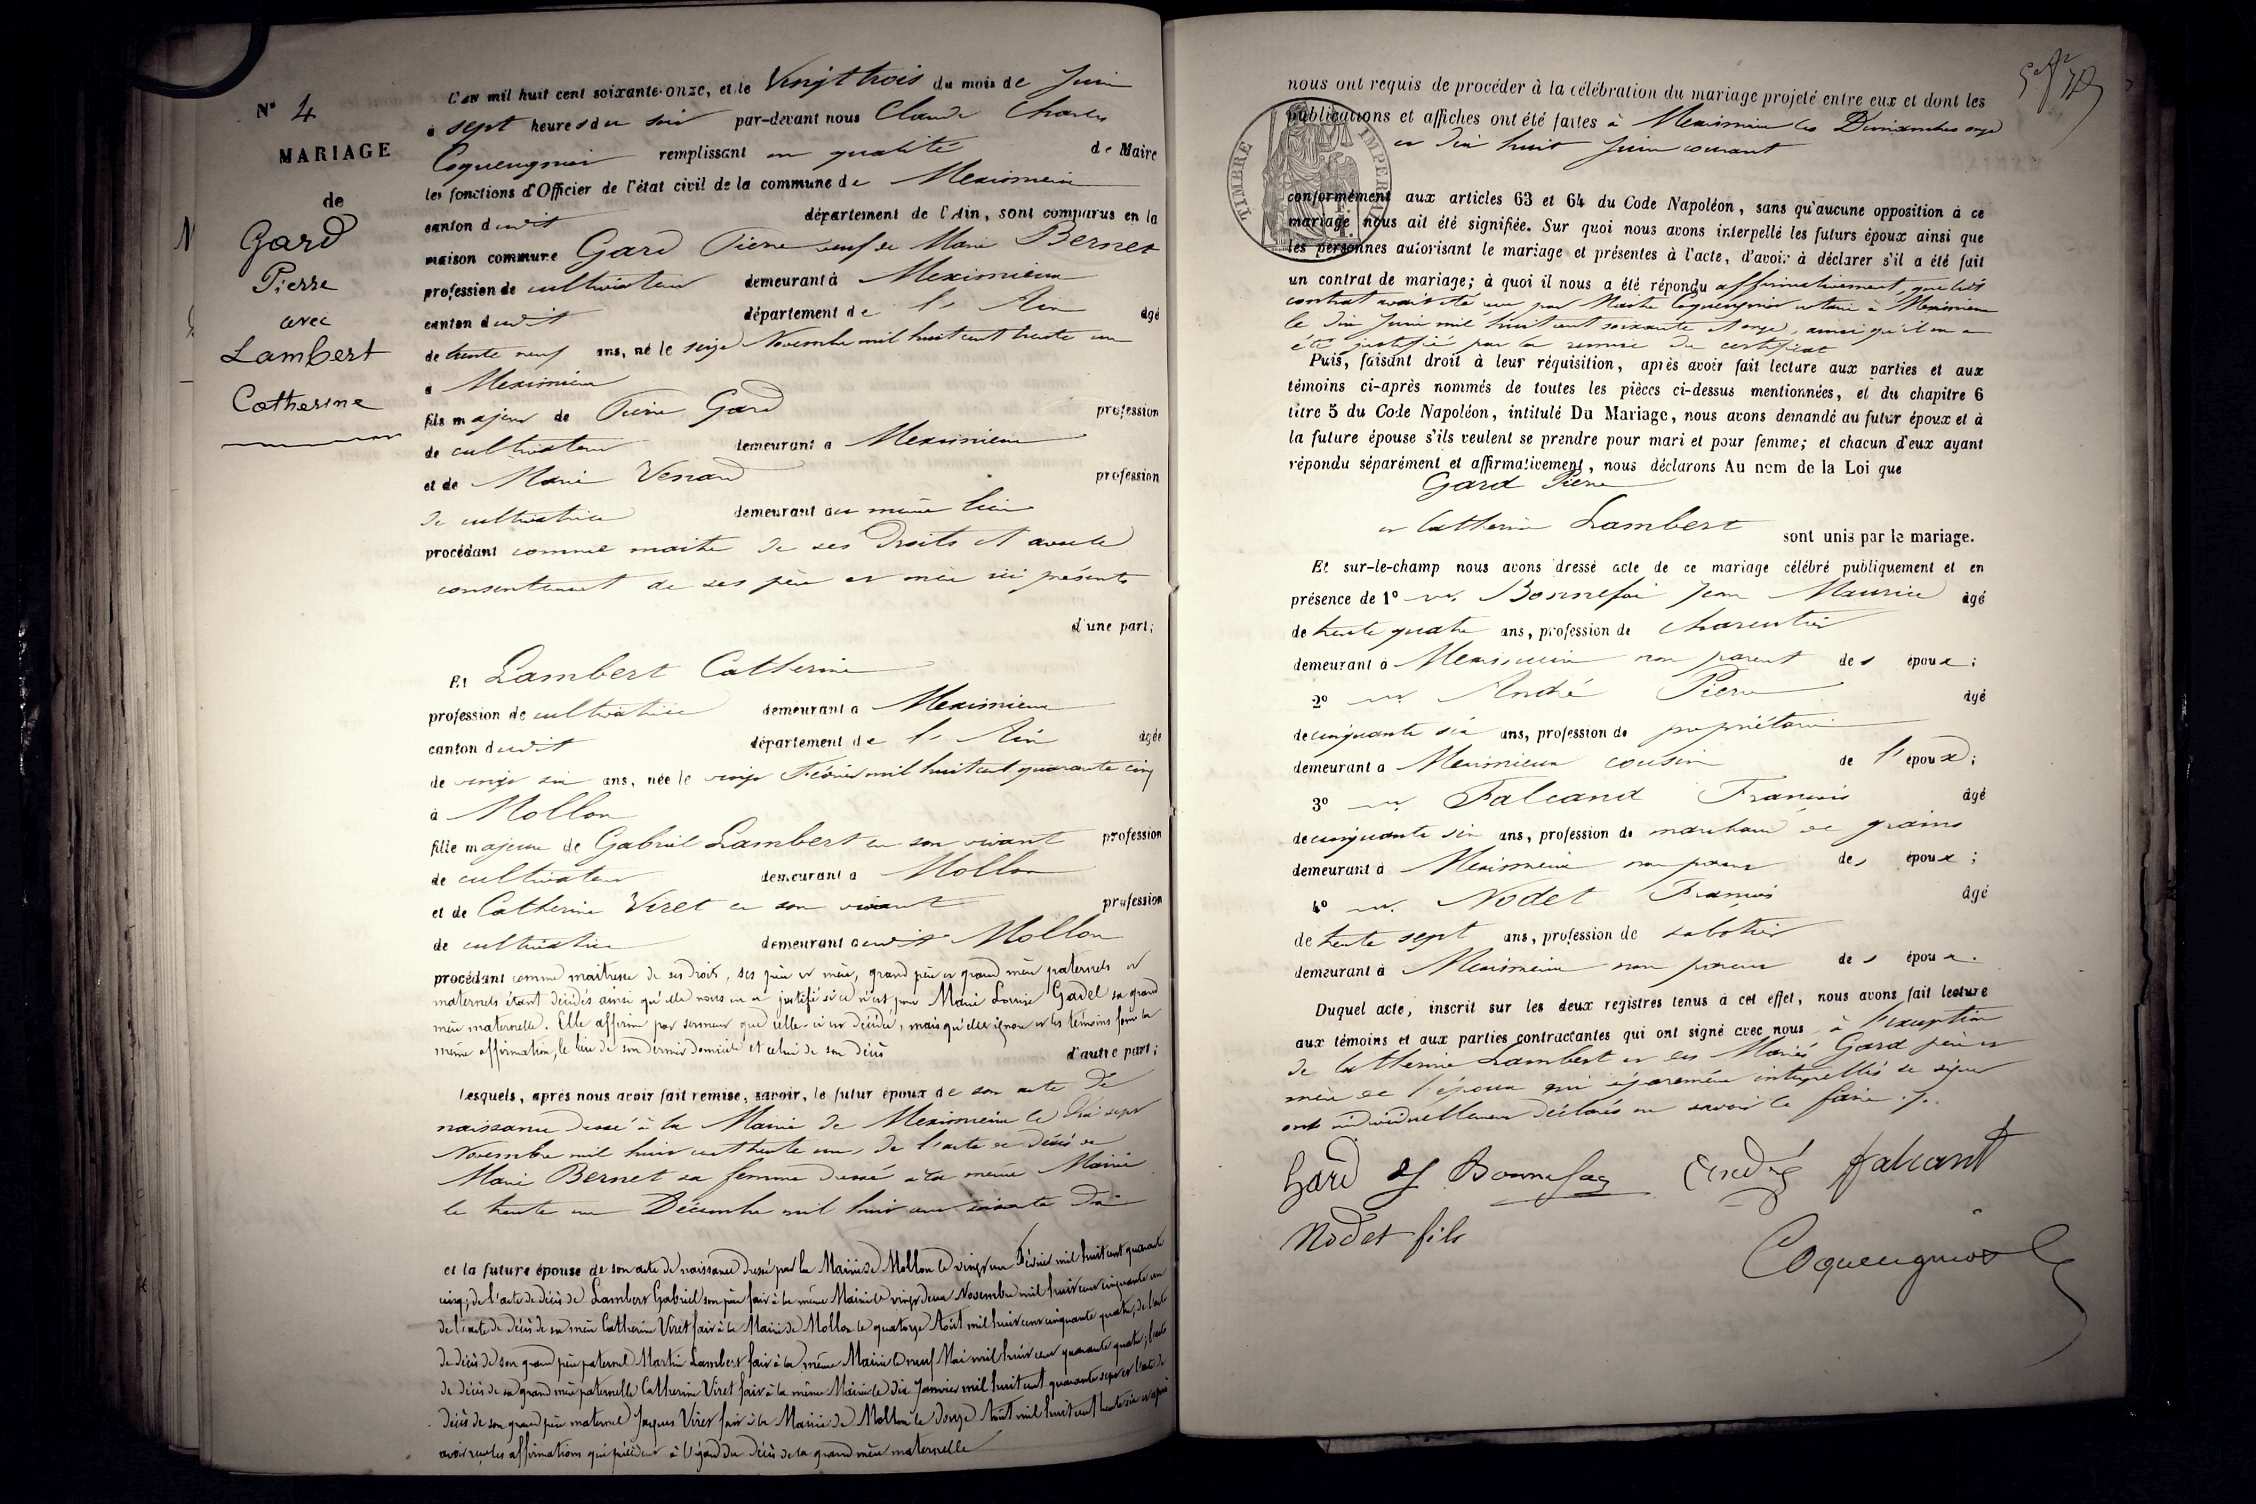 N° 4
MARIAGE
de
Gard
Pierre
avec
Lambert
Catherine
L'an mil huit cent soixante-onze, et le Vingt trois du mois de Juin
à sept heures du soir par-devant nous Claude Charles
Coqueugniot remplissant en qualité de Maire
les fonctions d'Officier de l'état civil de la commune de Meximieux
canton dudit département de l'Ain, sont comparus en la
maison commune Gard Pierre veuf de Marie Bernet
profession de cultivateur demeurant à Meximieux
canton dudit département de l'Ain âgé
de trente neuf ans, né le seize Novembre mil huit cent trente un
à Meximieux
fils majeur de Pierre Gard profession
de cultivateur demeurant à Meximieux
et de Marie Venard profession
de cultivatrice demeurant au même lieu
procédant comme maître de ses droits et avec le
consentement de ses père et mère ici présents
d'une part;
Et Lambert Catherine
profession de cultivatrice demeurant à Meximieux
canton dudit département de l'Ain âgée
de vingt six ans, née le vingt Février mil huit cent quarante cinq
à Mollon
fille majeure de Gabriel Lambert en son vivant profession
de cultivateur demeurant à Mollon
et de Catherine Viret en son vivant profession
de cultivatrice demeurant audit Mollon
procédant comme maîtresse de ses droits, ses père et mère, grand père et grand mère paternels et
maternels étant décédés ainsi qu'elle nous en a justifié si ce n'est pour Marie Louise Gadel sa grand
mère maternelle. Elle affirme par serment que celle-ci est décédée, mais qu'elle ignore et les témoins font la
même affirmation, le lieu de son dernier domicile et celui de son décès
d'autre part;
lesquels, après nous avoir fait remise, savoir, le futur époux de son acte de
naissance dressé à la Mairie de Meximieux le dix sept
Novembre mil huit cent trente un, de l'acte de décès de
Marie Bernet sa femme dressé à la même Mairie
le trente un Décembre mil huit cent soixante dix
et la future épouse de son acte de naissance dressé par la Mairie de Mollon le vingt un Février mil huit cent quarante
cinq; de l'acte de décès de Lambert Gabriel son père fait à la même Mairie le vingt deux Novembre mil huit cent cinquante un
de l'acte de décès de sa mère Catherine Viret fait à la Mairie de Mollon le quatorze Août mil huit cent cinquante quatre; de l'acte
de décès de son grand père paternel Martin Lambert fait à la même Mairie le neuf Mai mil huit cent quarante quatre; l'acte
de décès de sa grand mère paternelle Catherine Viret fait à la même Mairie le dix Janvier mil huit cent quarante sept et l'acte de
décès de son grand père maternel Jacques Viret fait à la Mairie de Mollon le douze Août mil huit cent trente six et après
avoir reçu les affirmations qui précèdent à l'égard du décès de la grand mère maternelle
nous ont requis de procéder à la célébration du mariage projeté entre eux et dont les
publications et affiches ont été faites à Meximieux les Dimanches onze
et dix huit Juin courant
TIMBRE IMPERIAL
conformément aux articles 63 et 64 du Code Napoléon, sans qu'aucune opposition à ce
mariage nous ait été signifiée. Sur quoi nous avons interpellé les futurs époux ainsi que
les personnes autorisant le mariage et présentes à l'acte, d'avoir à déclarer s'il a été fait
un contrat de mariage; à quoi il nous a été répondu affirmativement, que ledit
contrat avait été reçu par Maître Coqueugniot notaire à Meximieux
le dix Juin mil huit cent soixante et onze, ainsi qu'il en a
été justifié par la remise du certificat
Puis, faisant droit à leur réquisition, après avoir fait lecture aux parties et aux
témoins ci-après nommés de toutes les pièces ci-dessus mentionnées, et du chapitre 6
titre 5 du Code Napoléon, intitulé Du Mariage, nous avons demandé au futur époux et à
la future épouse s'ils veulent se prendre pour mari et pour femme; et chacun d'eux ayant
répondu séparément et affirmativement, nous déclarons Au nom de la Loi que
Gard Pierre
et Catherine Lambert sont unis par le mariage.
Et sur-le-champ nous avons dressé acte de ce mariage célébré publiquement et en
présence de 1° Bonnefoi Jean Maurice âgé
de trente quatre ans, profession de charcutier
demeurant à Meximieux non parent des époux;
2° André Pierre âgé
de cinquante six ans, profession de propriétaire
demeurant à Meximieux cousin de l'époux;
3° Falcand François âgé
de cinquante six ans, profession de marchand de grains
demeurant à Meximieux non parent des époux;
4° Nodet François âgé
de trente sept ans, profession de sabotier
demeurant à Meximieux non parent des époux.
Duquel acte, inscrit sur les deux registres tenus à cet effet, nous avons fait lecture
aux témoins et aux parties contractantes qui ont signé avec nous à l'exception
de Catherine Lambert et des Mariés Gard père et
mère de l'époux qui séparément interpellés de signer
ont individuellement déclarés ne savoir le faire.
Gard J Bonnefoy André Falcand
Nodet fils
Coqueugniot